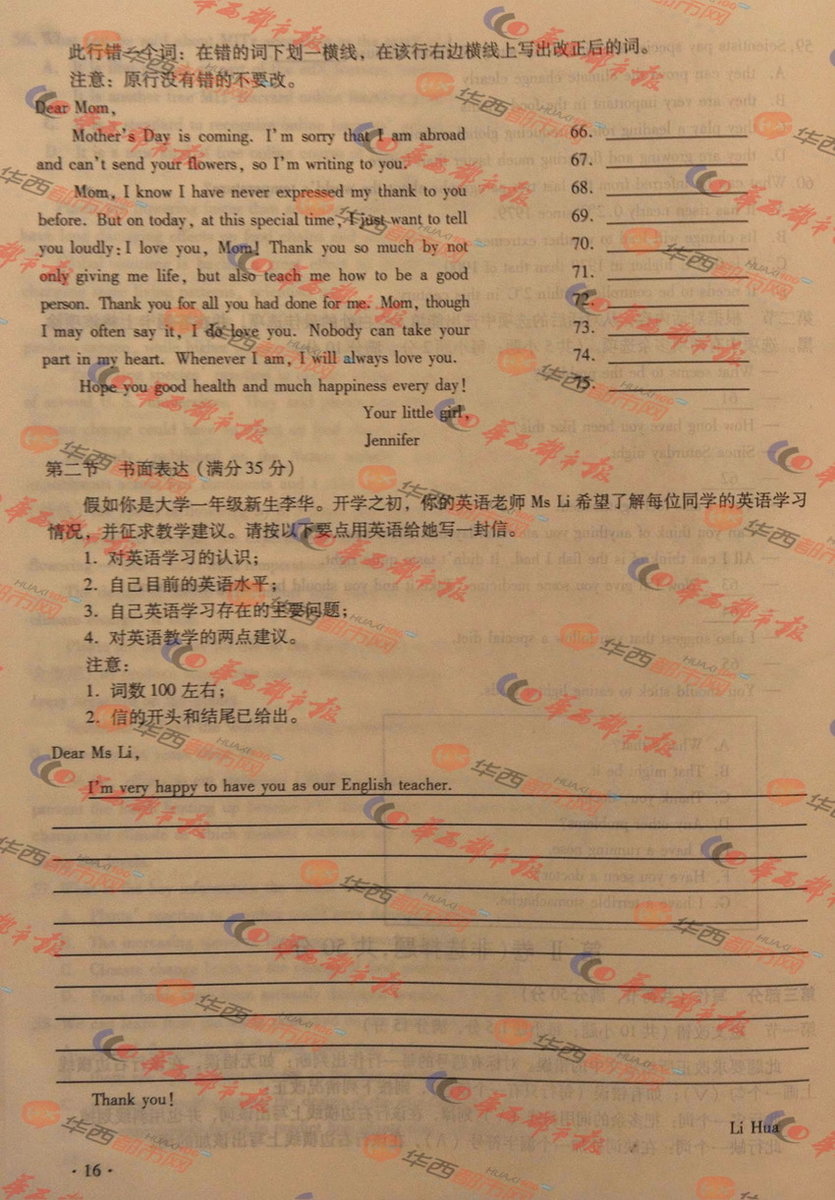 此行错一个词：在错的词下划一横线，在该行右边横线上写出改正后的词。
注意：原行没有错的不要改。
Dear Mom,
Mother's Day is coming. I'm sorry that I am abroad 66.
and can't send your flowers, so I'm writing to you. 67.
Mom, I know I have never expressed my thank to you 68.
before. But on today, at this special time, I just want to tell 69.
you loudly: I love you, Mom! Thank you so much by not 70.
only giving me life, but also teach me how to be a good 71.
person. Thank you for all you had done for me. Mom, though 72.
I may often say it, I do love you. Nobody can take your 73.
part in my heart. Whenever I am, I will always love you. 74.
Hope you good health and much happiness every day! 75.
Your little girl,
Jennifer
第二节 书面表达（满分35分）
假如你是大学一年级新生李华。开学之初，你的英语老师 Ms Li 希望了解每位同学的英语学习
情况，并征求教学建议。请按以下要点用英语给她写一封信。
1. 对英语学习的认识；
2. 自己目前的英语水平；
3. 自己英语学习存在的主要问题；
4. 对英语教学的两点建议。
注意：
1. 词数100左右；
2. 信的开头和结尾已给出。
Dear Ms Li,
I'm very happy to have you as our English teacher.
Thank you!
Li Hua
· 16 ·
华西都市报
华西都市网
HUAXI100